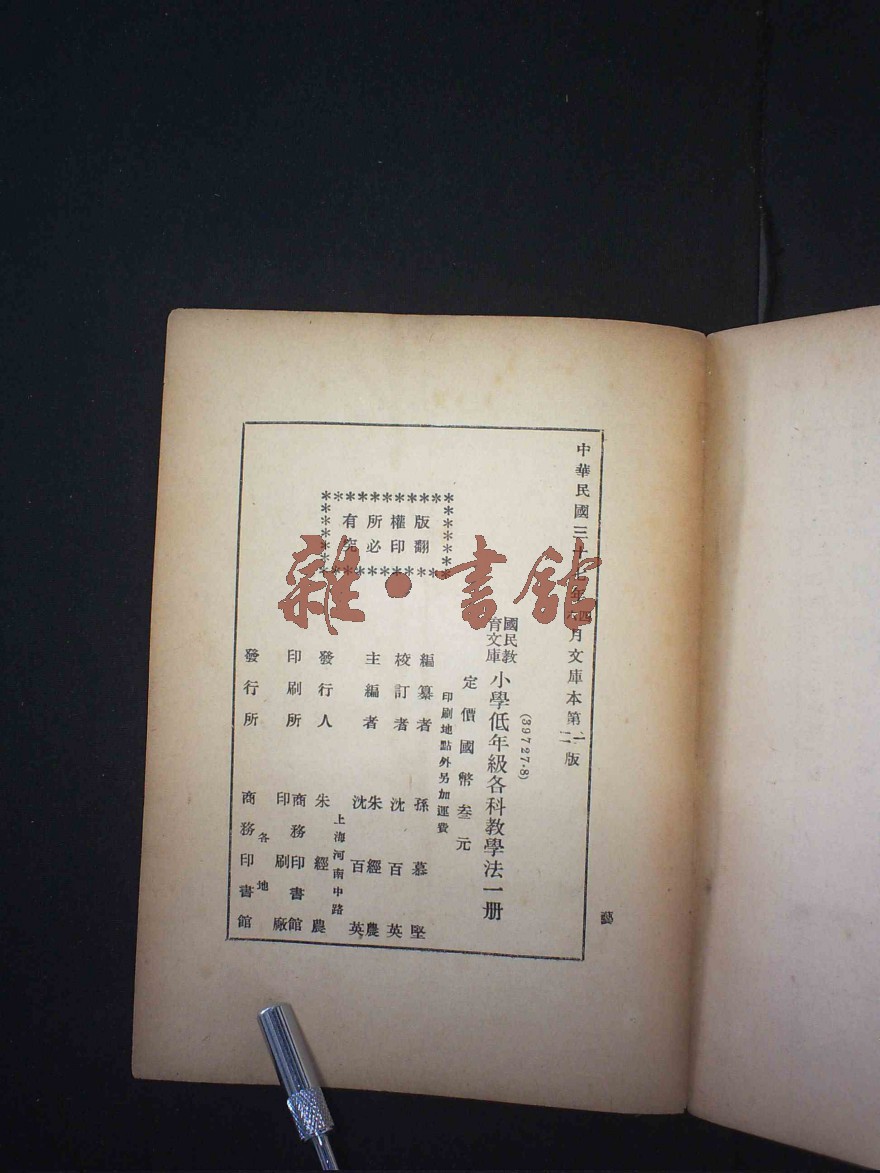 中華民國三十七年四六月文庫本第一二版
(39727·8)
國民教育文庫 小學低年級各科教學法一册
定價國幣叁元
印刷地點外另加運費
版權所有
翻印必究
編纂者 孫慕堅
校訂者 沈百英
主編者 朱經農 沈百英
上海河南中路
發行人 朱經農
印刷所 商務印書館印刷廠
各地
發行所 商務印書館
雜·書館